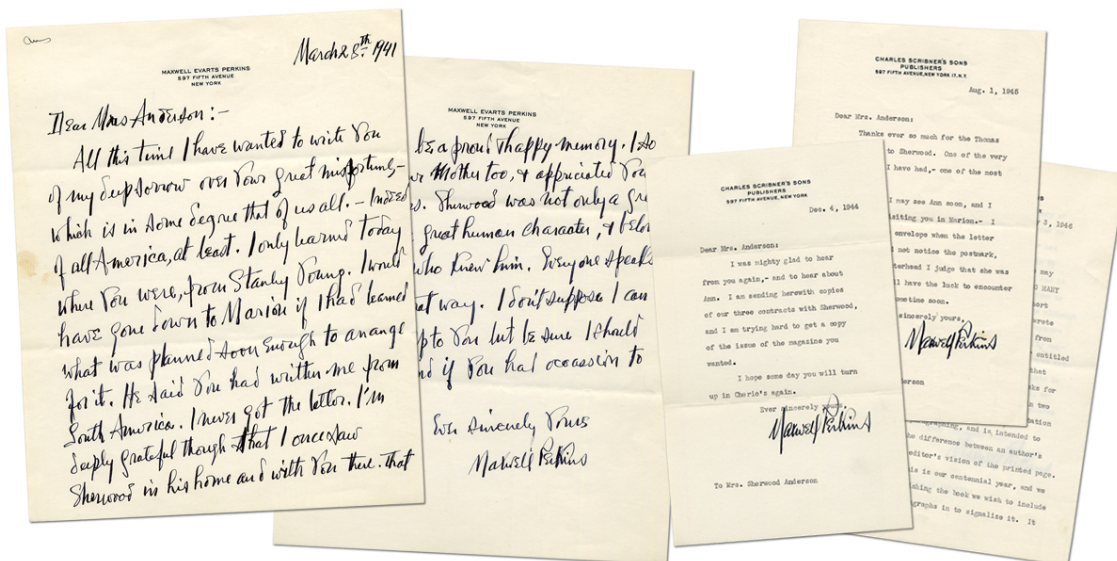 March 28th 1941
MAXWELL EVARTS PERKINS
597 FIFTH AVENUE
NEW YORK
Dear Mrs Anderson:-
All this time I have wanted to write You
of my deep sorrow over Your great misfortune-
which is in some degree that of us all. - Indeed
of all America, at least. I only learned today
where You were, from Stanley Young. I would
have gone down to Marion if I had learned
what was planned soon enough to arrange
for it. He said You had written me from
South America. I never got the letter. I'm
deeply grateful though that I once saw
Sherwood in his home and with You there. That
MAXWELL EVARTS PERKINS
597 FIFTH AVENUE
NEW YORK
be a proud & happy memory. I so
Mother too, & appriciated You
Sherwood was not only a gre
great human character, & belov
who knew him. Everyone speaks
at way. I don't suppose I can
to You but be sure I should
if You had occassion to
Ever Sincerely Yours
Maxwell Perkins
CHARLES SCRIBNER'S SONS
PUBLISHERS
597 FIFTH AVENUE, NEW YORK
Dec. 4, 1944
Dear Mrs. Anderson:
I was mighty glad to hear
from you again,- and to hear about
Ann. I am sending herewith copies
of our three contracts with Sherwood,
and I am trying hard to get a copy
of the issue of the magazine you
wanted.
I hope some day you will turn
up in Cherio's again.
Ever sincerely yours,
Maxwell Perkins
To Mrs. Sherwood Anderson
CHARLES SCRIBNER'S SONS
PUBLISHERS
597 FIFTH AVENUE, NEW YORK 17, N.Y.
Aug. 1, 1945
Dear Mrs. Anderson:
Thanks ever so much for the Thomas
to Sherwood. One of the very
I have had,- one of the most
I may see Ann soon, and I
isiting you in Marion.- I
envelope when the letter
not notice the postmark,
terhead I judge that she was
l have the luck to encounter
ometime soon.
sincerely yours,
Maxwell Perkins
derson
3, 1946
may
HART
ort
wrote
from
entitled
that
ks for
n two
tation
graphing, and is intended to
he difference between an author's
editor's vision of the printed page.
is is our centennial year, and we
shing the book we wish to include
graphs in to signalize it. It